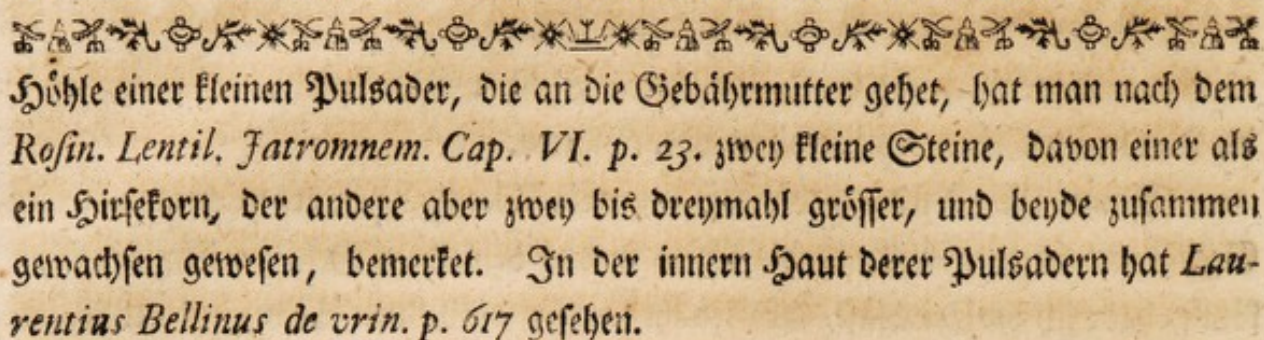 Höhle einer kleinen Pulsader, die an die Gebährmutter gehet, hat man nach dem
Rosin. Lentil. Jatromnem. Cap. VI. p. 23. zwey kleine Steine, davon einer als
ein Hirsekorn, der andere aber zwey bis dreymahl grösser, und beyde zusammen
gewachsen gewesen, bemerket. In der innern Haut derer Pulsadern hat Lau-
rentius Bellinus de vrin. p. 617 gesehen.